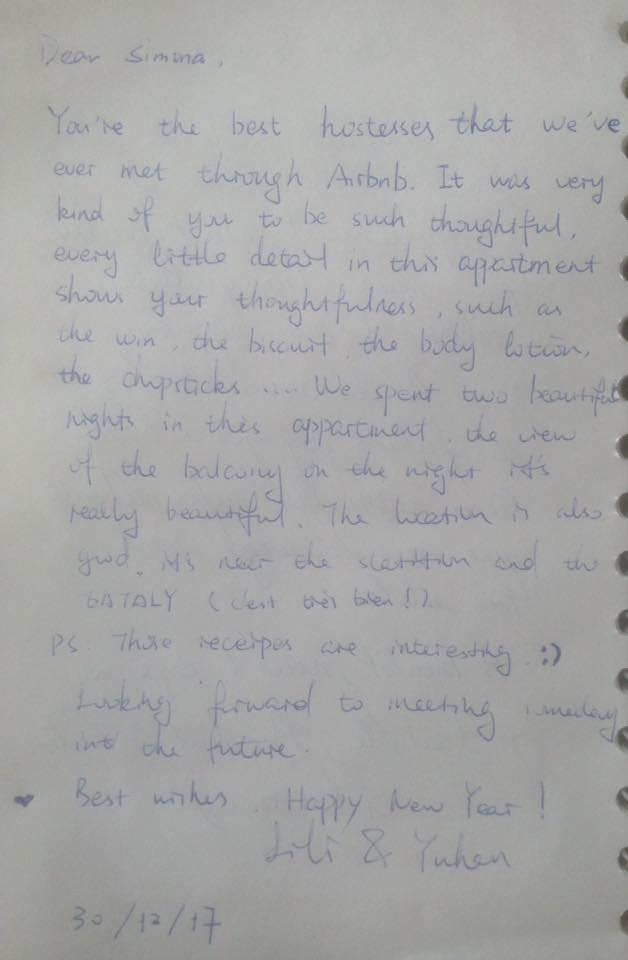 Dear Simona,
You're the best hostesses that we've
ever met through Airbnb. It was very
kind of you to be such thoughtful,
every little detail in this appartment
shows your thoughtfulness, such as
the win, the biscuit, the body lotion,
the chopsticks .... We spent two beautiful
nights in this appartment, the view
of the balcony on the night it's
really beautiful. The location is also
good, it's near the and the
EATALY (c'est très bien!).
PS. Those receipes are interesting. :)
Looking forward to meeting someday
into the future.
♥ Best wishes. Happy New Year!
Lili & Yuhan
30/12/17